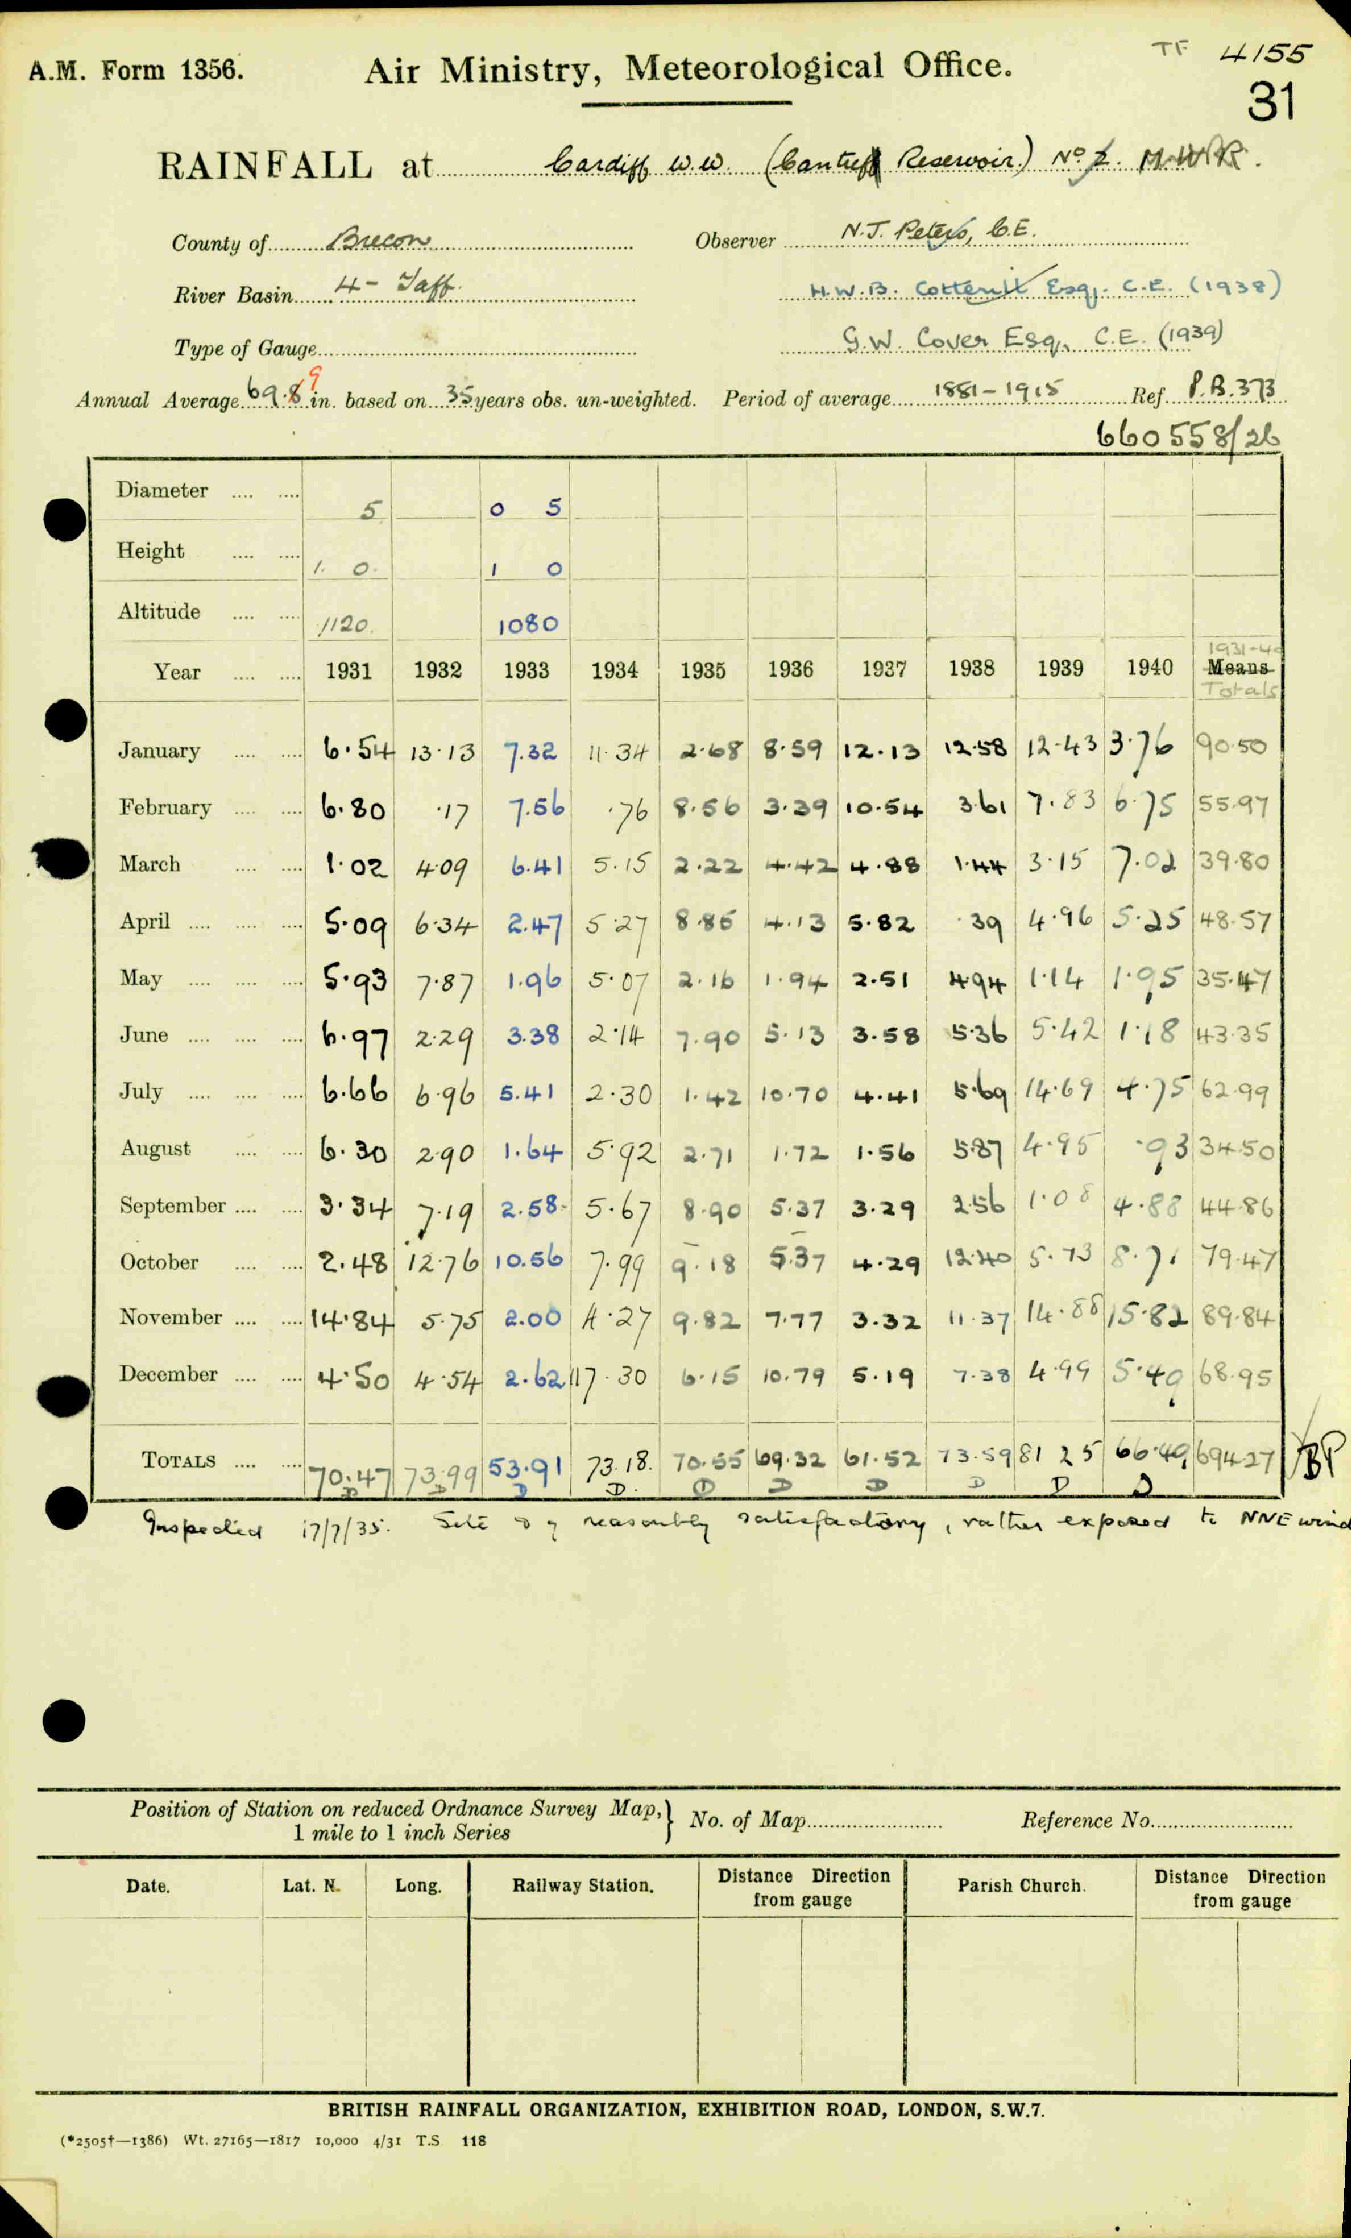 TF 4155
A.M. Form 1356. Air Ministry, Meteorological Office. 31
RAINFALL at Cardiff W.W. (Cantref Reservoir.) No 2.
County of Brecon Observer N.J. Peters, C.E.
River Basin 4 - Taff. H.W.B. Cotterill Esq. C.E. (1938)
Type of Gauge G.W. Cover Esq. C.E. (1939)
Annual Average 69.8 9 in. based on 35 years obs. un-weighted. Period of average 1881-1915 Ref. P.B. 373
660558/26
Diameter .... .... 5 0 5
Height .... .... 1. 0. 1 0
Altitude .... .... 1120. 1080
Year .... .... 1931 1932 1933 1934 1935 1936 1937 1938 1939 1940 1931-40 Means Totals
January .... .... 6.54 13.13 7.32 11.34 2.68 8.59 12.13 12.58 12.43 3.76 90.50
February .... .... 6.80 .17 7.56 .76 8.56 3.39 10.54 3.61 7.83 6.75 55.97
March .... .... 1.02 4.09 6.41 5.15 2.22 4.42 4.88 1.44 3.15 7.02 39.80
April .... .... .... 5.09 6.34 2.47 5.27 8.85 4.13 5.82 .39 4.96 5.25 48.57
May .... .... .... 5.93 7.87 1.96 5.07 2.16 1.94 2.51 4.94 1.14 1.95 35.47
June .... .... .... 6.97 2.29 3.38 2.14 7.90 5.13 3.58 5.36 5.42 1.18 43.35
July .... .... .... 6.66 6.96 5.41 2.30 1.42 10.70 4.41 5.69 14.69 4.75 62.99
August .... .... 6.30 2.90 1.64 5.92 2.71 1.72 1.56 5.87 4.95 .93 34.50
September .... .... 3.34 7.19 2.58 5.67 8.90 5.37 3.29 2.56 1.08 4.88 44.86
October .... .... 2.48 12.76 10.56 7.99 9.18 5.37 4.29 12.40 5.73 8.71 79.47
November .... .... 14.84 5.75 2.00 4.27 9.82 7.77 3.32 11.37 14.88 15.82 89.84
December .... .... 4.50 4.54 2.62 17.30 6.15 10.79 5.19 7.38 4.99 5.49 68.95
TOTALS .... .... 70.47 73.99 53.91 73.18. 70.55 69.32 61.52 73.59 81 25 66.49 694.27 BP
D D D D. D D D D D D
Inspected 17/7/35. Site reasonably satisfactory, rather exposed to NNE wind
Position of Station on reduced Ordnance Survey Map,} No. of Map Reference No.
1 mile to 1 inch Series
Date. Lat. N. Long. Railway Station. Distance Direction from gauge Parish Church. Distance Direction from gauge
BRITISH RAINFALL ORGANIZATION, EXHIBITION ROAD, LONDON, S.W.7.
(*2505†—1386) Wt. 27165—1817 10,000 4/31 T.S 118